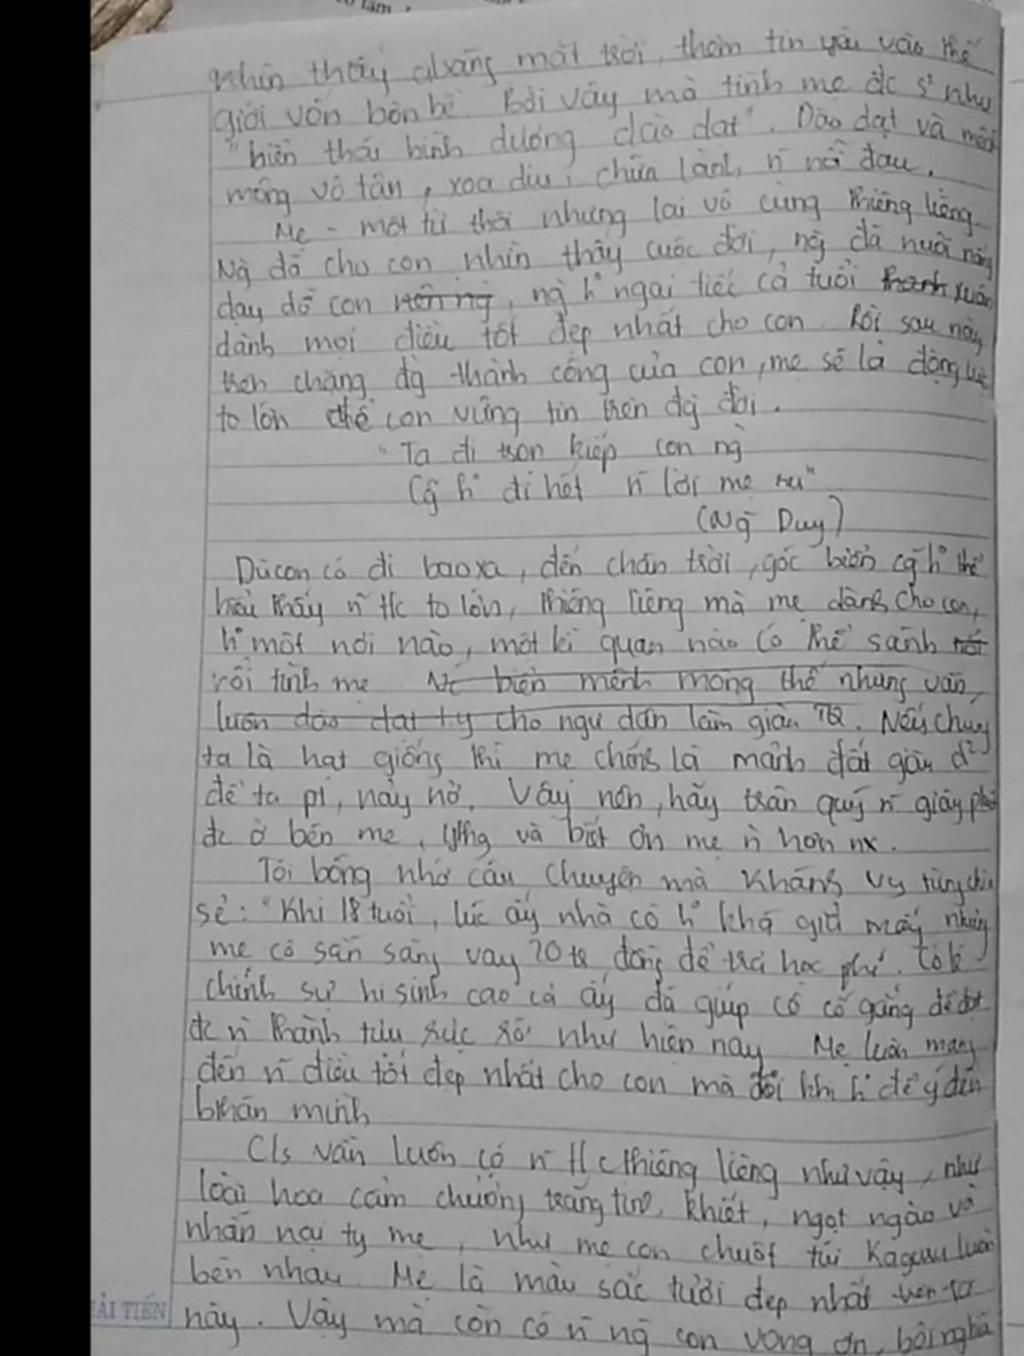 tâm.
nhìn thấy ánh sáng mặt trời, thêm tin yêu vào thế
giới vốn bộn bề. Bởi vậy mà tình mẹ đc s² như
"biển thái bình dương dào dạt". Dào dạt và mênh
mông vô tận, xoa dịu, chữa lành n~ nỗi đau.
Mẹ - một từ thôi nhưng lại vô cùng thiêng liêng.
Ng` đã cho con nhìn thấy cuộc đời, ng` đã nuôi nấng
dạy dỗ con, ng` k° ngại tiếc cả tuổi thanh xuân
dành mọi điều tốt đẹp nhất cho con. Rồi sau này
trên chặng đg thành công của con, mẹ sẽ là động lực
to lớn để con vững tin trên đg đời.
"Ta đi trọn kiếp con ng`
Cg~ k° đi hết n~ lời mẹ ru"
(Ng~ Duy)
Dù con có đi bao xa, đến chân trời, góc biển cg~ k° thể
hiểu thấy n~ t/c to lớn, thiêng liêng mà mẹ dành cho con,
k° một nơi nào, một kì quan nào có thể sánh
với tình mẹ. Nc biển mênh mông thế nhưng vẫn
luôn dào dạt t.y cho ngư dân làm giàu TQ. Nếu chúng
ta là hạt giống thì mẹ chính là mảnh đất giàu d²
để ta pt, nảy nở. Vậy nên, hãy trân quý n~ giây phút
đc ở bên mẹ, và biết ơn mẹ n` hơn nx.
Tôi bỗng nhớ câu chuyện mà Khánh Vy từng chia
sẻ: "Khi 18 tuổi, lúc ấy nhà cô k° khá giả mấy nhưng
mẹ cô sẵn sàng vay 20 tr đồng để trả học phí. Có lẽ
chính sự hi sinh cao cả ấy đã giúp cô cố gắng để đạt
đc n~ thành tựu rực rỡ như hiện nay. Mẹ luôn mang
đến n~ điều tốt đẹp nhất cho con mà đôi khi k° để ý đến
bản thân mình
C/s vẫn luôn có n~ t/c thiêng liêng như vậy, như
loài hoa cẩm chướng trắng tinh khiết, ngọt ngào và
nhẫn nại ty mẹ, như mẹ con chuột túi Kaguru luôn
bên nhau. Mẹ là màu sắc tươi đẹp nhất trên
này. Vậy mà còn có n~ ng` con vong ơn, bội nghĩa
HẢI TIẾN